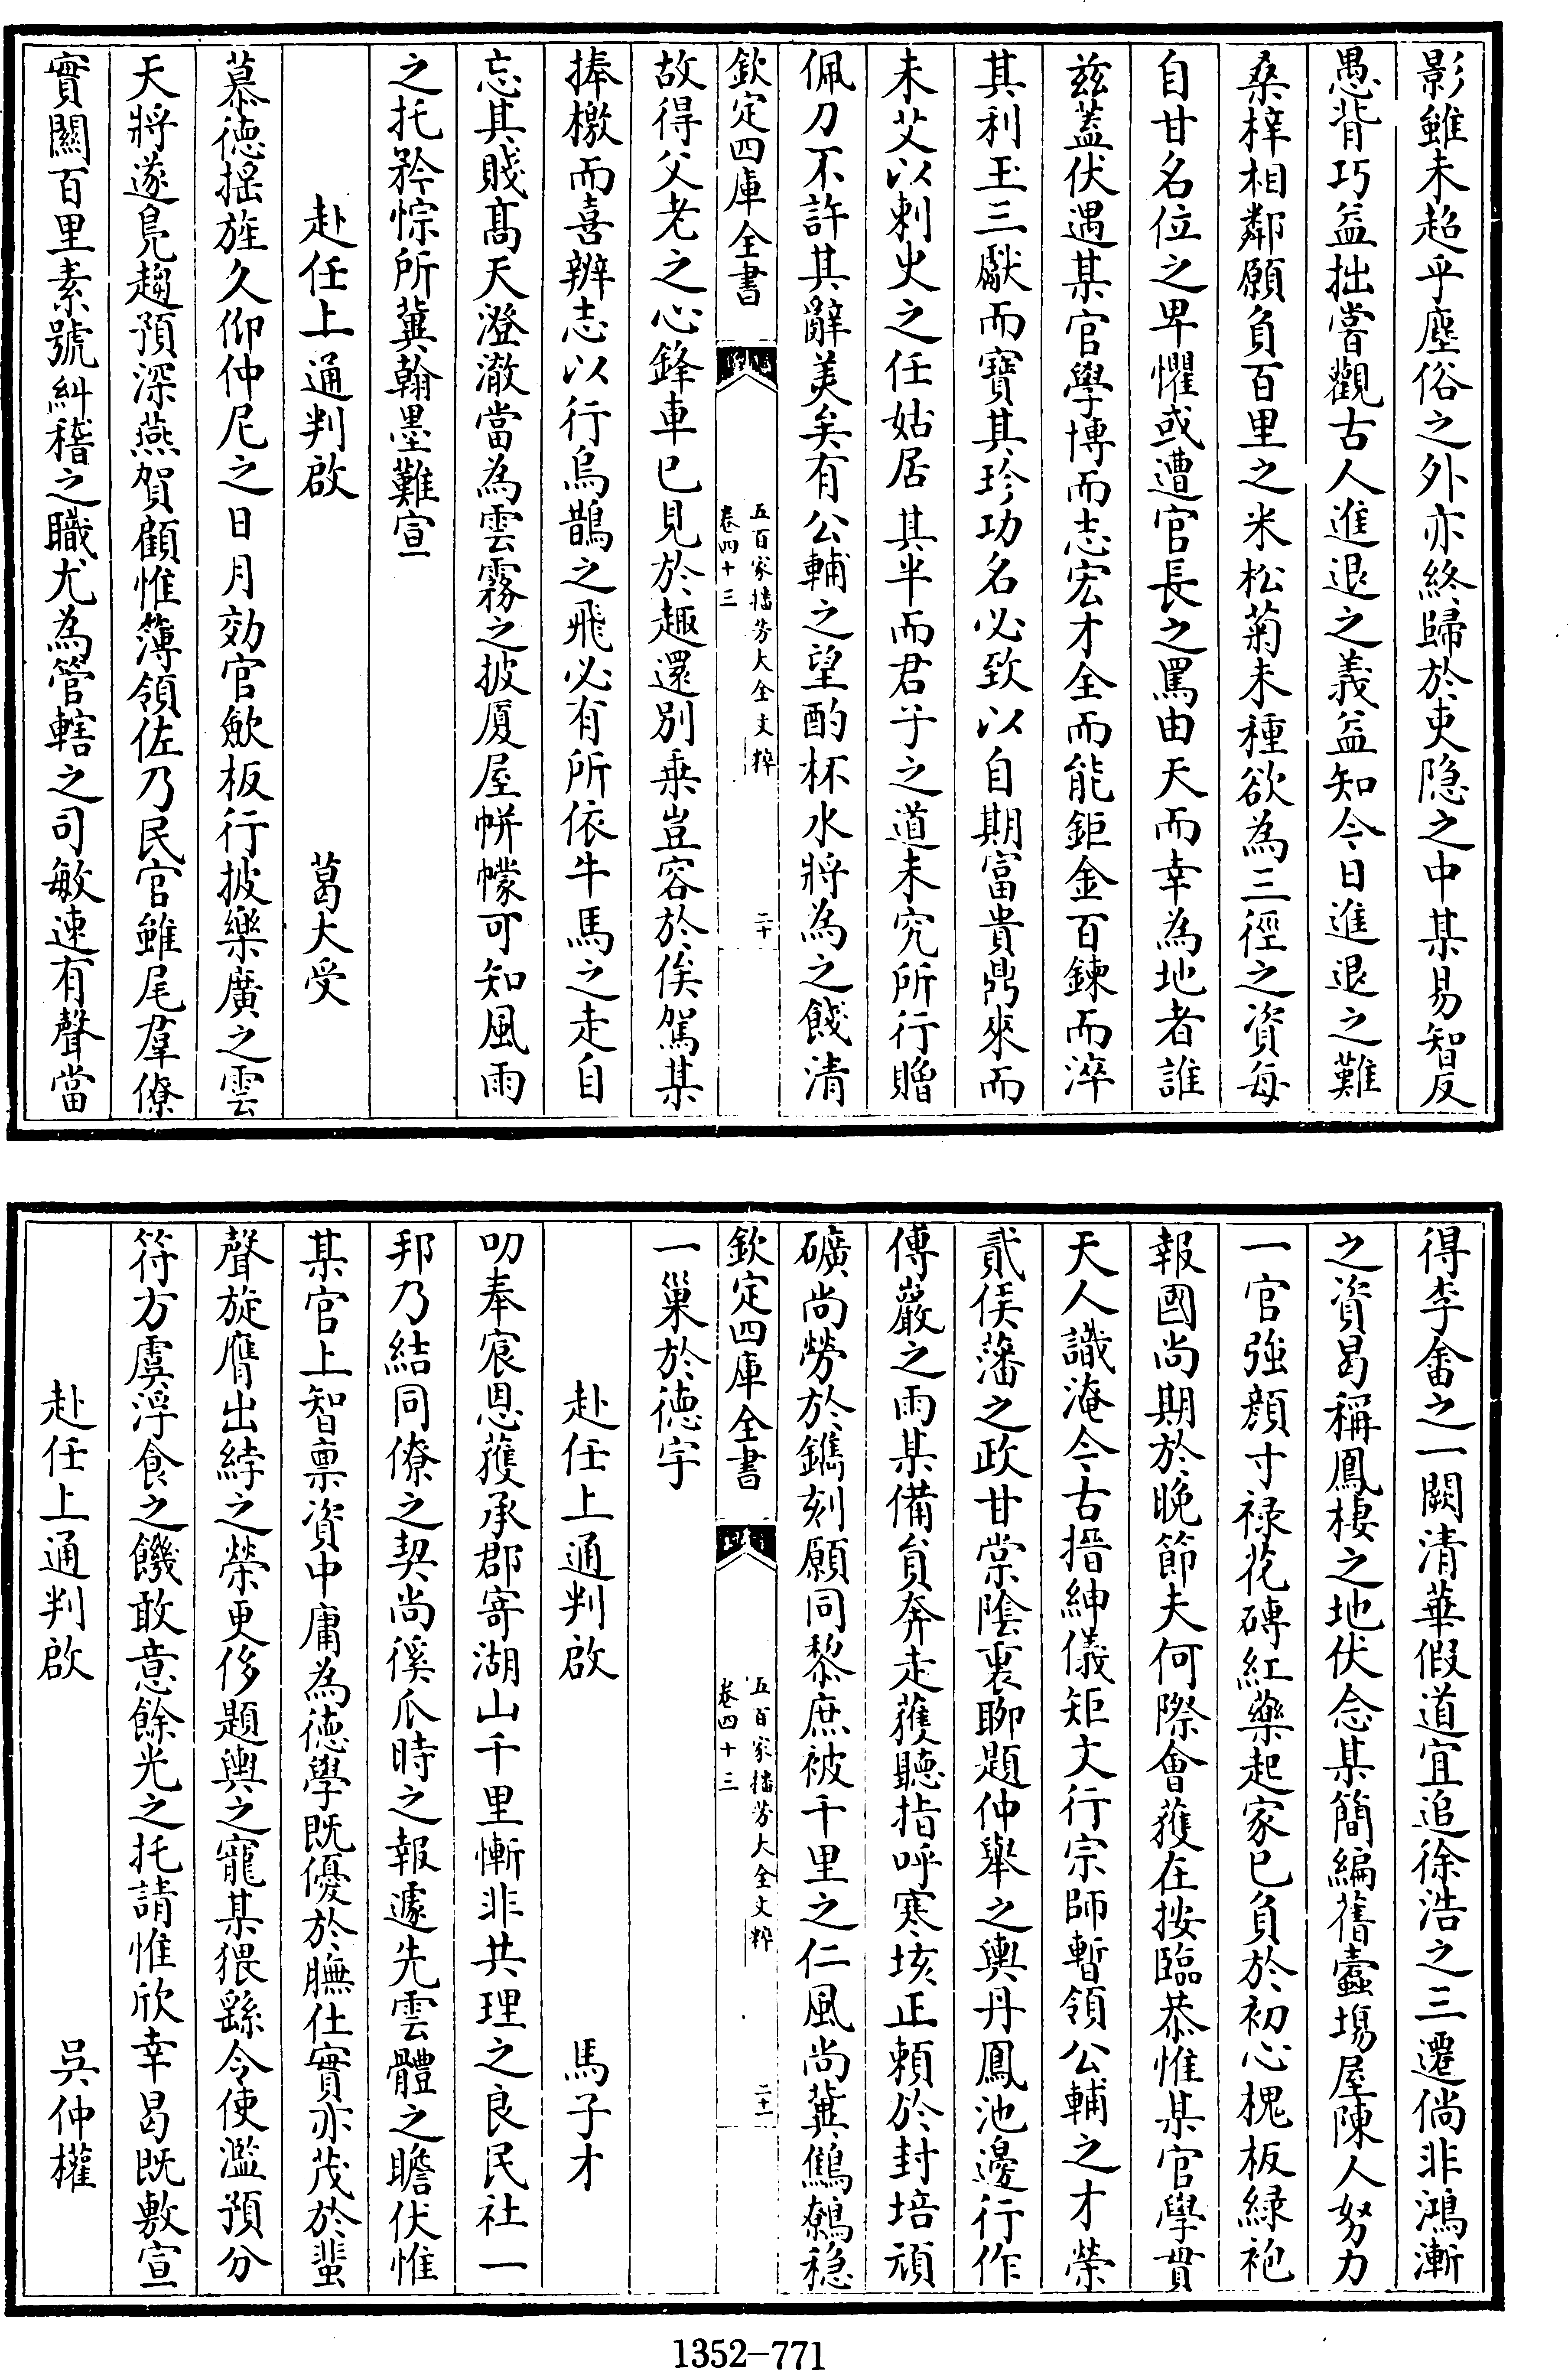 影雖未超乎塵俗之外亦終歸於吏隐之中某易智反
愚背巧益拙嘗觀古人進退之義益知今日進退之難
桑梓相鄰願負百里之米松菊未種欲為三徑之資每
自甘名位之卑懼或遭官長之罵由天而幸為地者誰
兹蓋伏遇某官學博而志宏才全而能鉅金百鍊而淬
其利玉三獻而寳其珍功名必致以自期富貴鼎來而
未艾以刺史之任姑居其半而君子之道未究所行贈
佩刀不許其辭美矣有公輔之望酌杯水將為之餞清
欽定四庫全書
五百家播芳大全文粹
卷四十三
二十
故得父老之心鋒車已見於趣還别乗豈容於俟駕某
捧檄而喜辨志以行烏鵲之飛必有所依牛馬之走自
忘其賤髙天澄澈當為雲霧之披厦屋帡幪可知風雨
之托矜悰所冀翰墨難宣
赴任上通判啟 葛大受
慕徳揺旌久仰仲尼之日月効官歛板行披樂廣之雲
天將遂鳬趨預深燕賀顧惟簿領佐乃民官雖尾羣僚
實關百里素號糾稽之職尤為管轄之司敏速有聲當
得李畬之一闕清華假道宜追徐浩之三遷倘非鴻漸
之資曷稱鳳棲之地伏念某簡編舊蠧塲屋陳人努力
一官強顔寸禄花磚紅藥起家已負於初心槐板緑袍
報國尚期於晚節夫何際會獲在按臨恭惟某官學貫
天人識淹今古搢紳儀矩文行宗師暫領公輔之才榮
貳侯藩之政甘棠隂裏聊題仲舉之輿丹鳳池邊行作
傅巖之雨某備貟奔走獲聽指呼寒垓正頼於封培頑
礦尚勞於鐫刻願同黎庶被千里之仁風尚冀鷦鷯穏
欽定四庫全書
五百家播芳大全文粹
卷四十三
二十一
一巢於徳宇
赴任上通判啟 馬子才
叨奉宸恩獲承郡寄湖山千里慚非共理之良民社一
邦乃結同僚之契尚徯爪時之報遽先雲體之瞻伏惟
某官上智禀資中庸為徳學既優於膴仕實亦茂於蜚
聲旋膺出綍之榮更侈題輿之寵某猥繇令使濫預分
符方虞浮食之饑敢意餘光之托請惟欣幸曷既敷宣
赴任上通判啟 吳仲權
1352-771